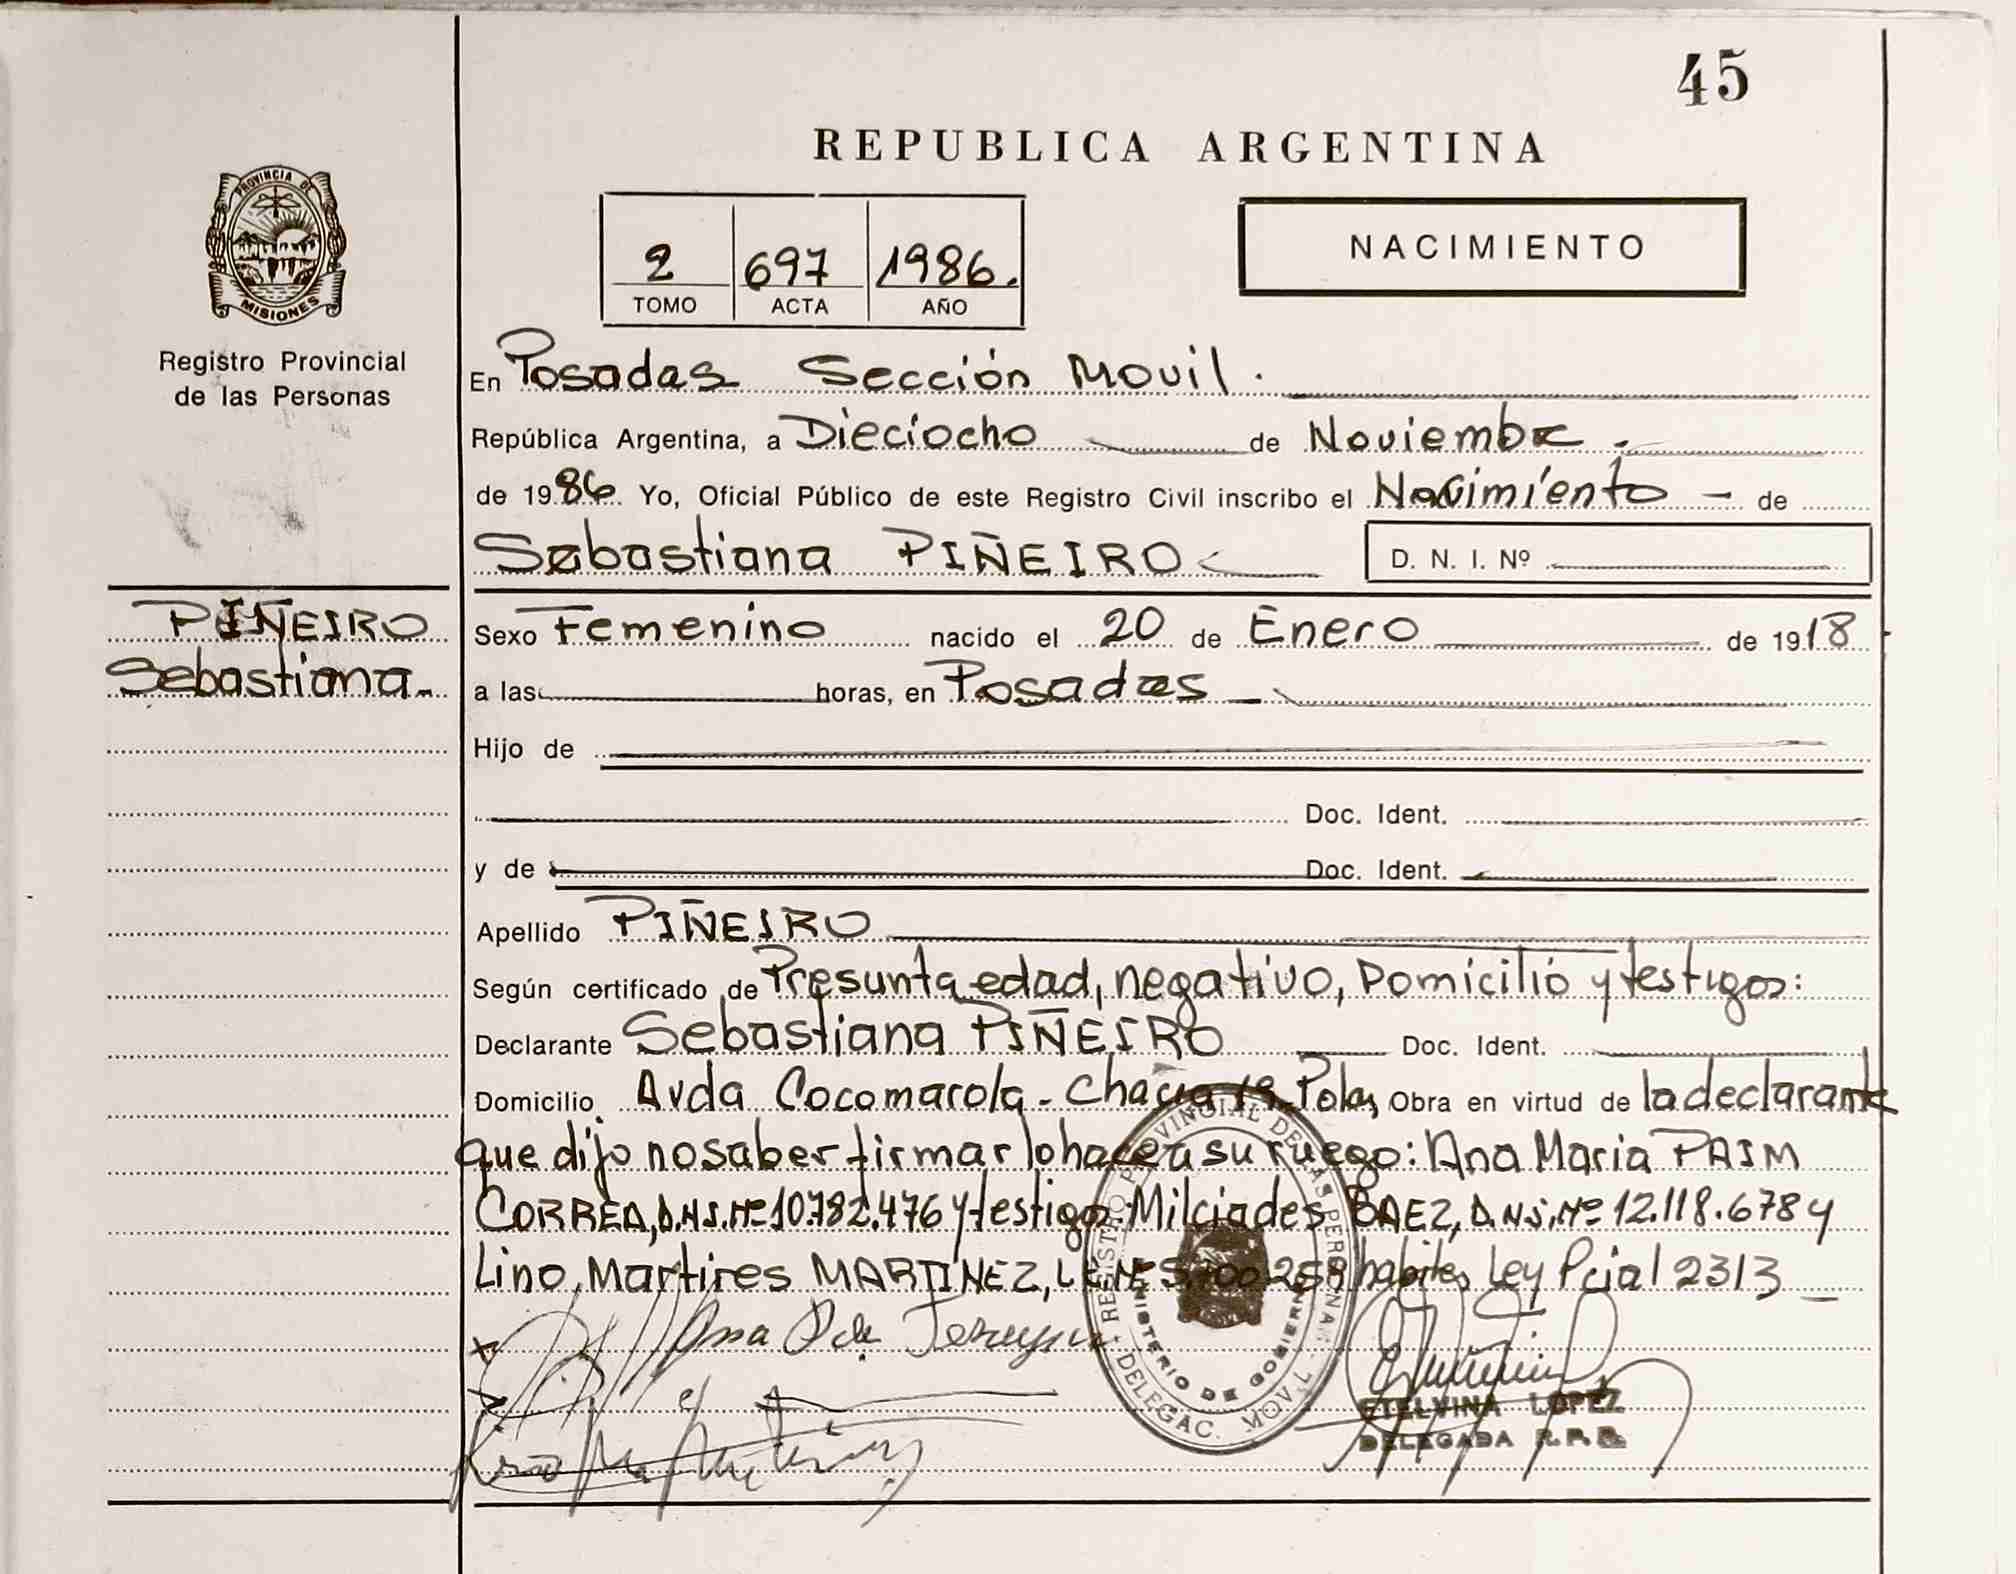 45
REPUBLICA ARGENTINA
PROVINCIA DE
MISIONES
Registro Provincial
de las Personas
2 697 1986.
TOMO ACTA AÑO
NACIMIENTO
En Posadas Sección Movil.
República Argentina, a Dieciocho de Noviembre.
de 1986. Yo, Oficial Público de este Registro Civil inscribo el Nacimiento - de
Sebastiana PIÑEIRO
D. N. I. Nº
PIÑEIRO
Sebastiana.
Sexo Femenino nacido el 20 de Enero de 1918
a las horas, en Posadas
Hijo de
Doc. Ident.
y de Doc. Ident.
Apellido PIÑEIRO
Según certificado de Presunta edad, negativo, Domicilio y testigos:
Declarante Sebastiana PIÑEIRO Doc. Ident.
Domicilio Avda Cocomarola - Chacra Obra en virtud de la declarante
que dijo no saber firmar lo hace a su ruego: Ana Maria PAIM
CORREA, D.N.I. Nº 10.782.476 y testigos: Milciades BAEZ, D.N.I. Nº 12.118.678 y
Lino Martires MARTINEZ, habiles Ley Pcial 2313
REGISTRO PROVINCIAL DE LAS PERSONAS
MINISTERIO DE GOBIERNO
DELEGAC. MOVIL
Ana P de
ETELVINA LOPEZ
DELEGADA R.P.P.